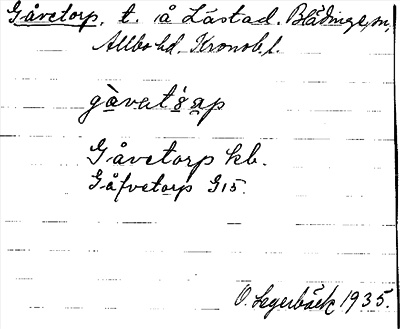 Gåvetorp, t. å Låstad. Blädinge sn,
Allbo hd. Kronob. l.
gåvat`s`ap
Gåvetorp kb.
Gåfvetorp G15.
O. Legerbäck 1935.